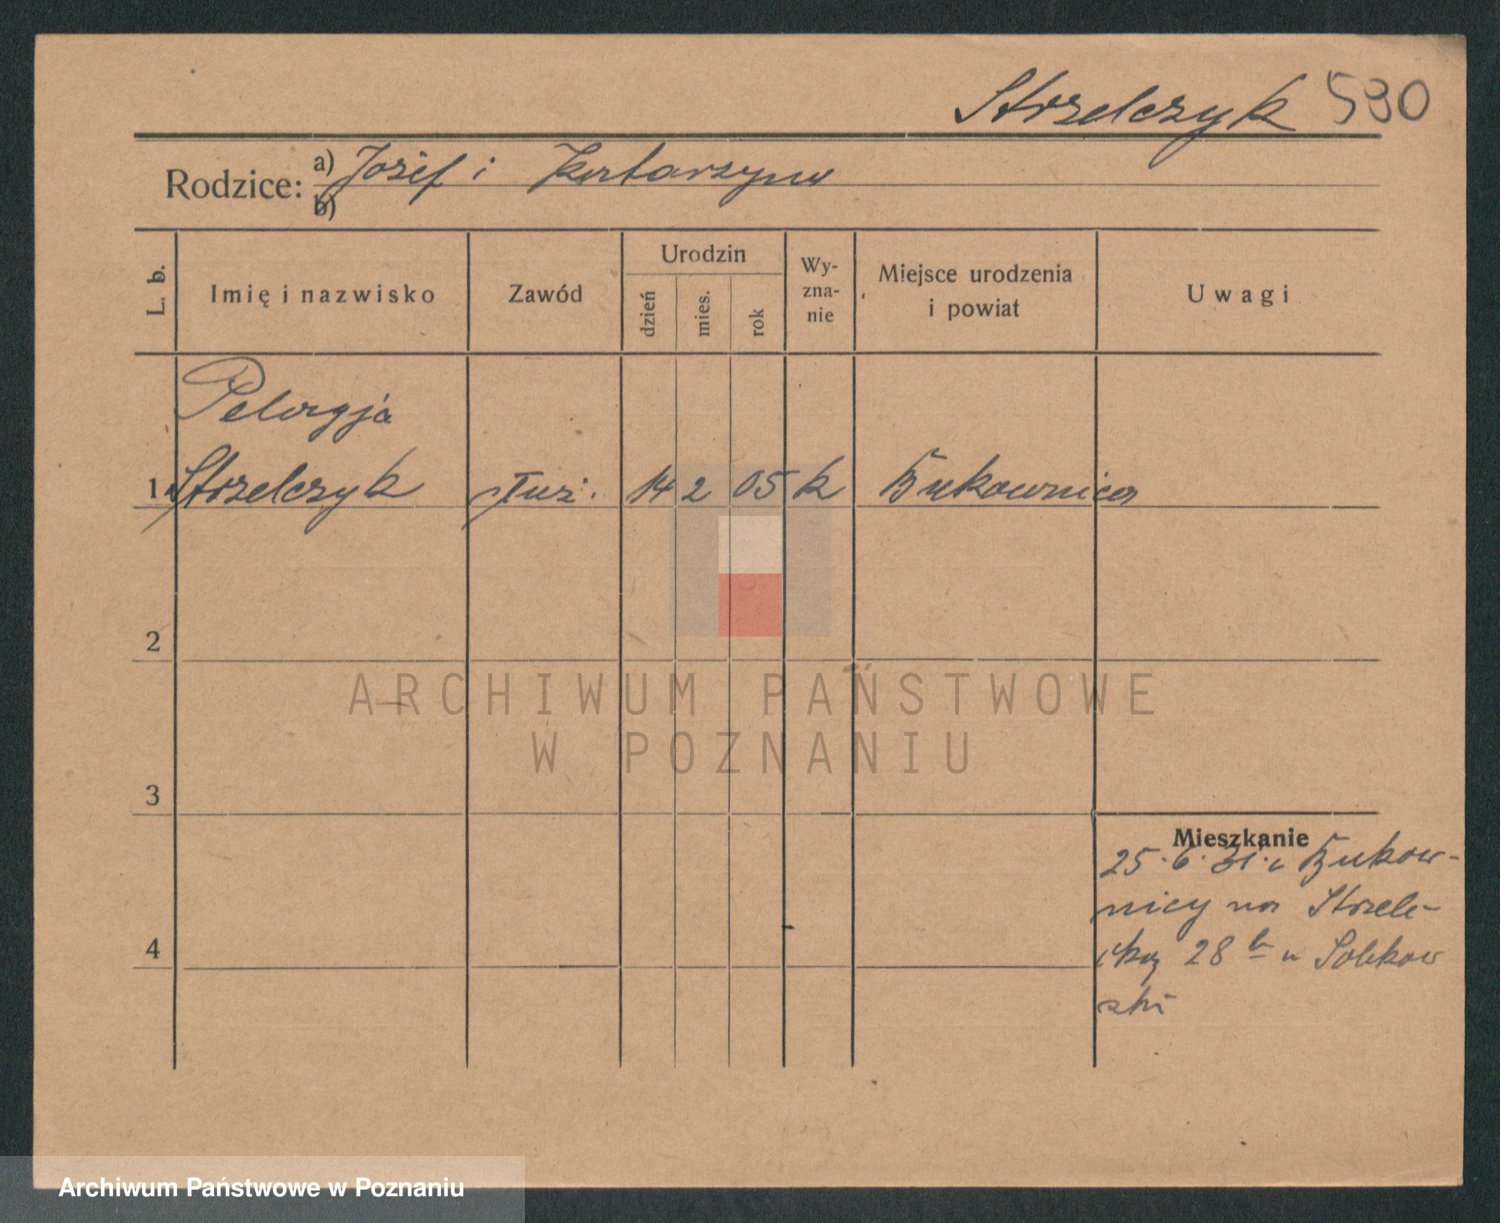 Strzelczyk 590
Rodzice:
a) Józef i Katarzyna
b)
L. b.
Imię i nazwisko
Zawód
Urodzin
dzień
mies.
rok
Wy-
zna-
nie
Miejsce urodzenia
i powiat
Uwagi
Pelagja
1 Strzelczyk służ. 14 2 05 k Bukownica
2
3
4
Mieszkanie
25.6.31. z Bukow-
nicy na Strzele-
cką 28 u Sobkow
ski
ARCHIWUM PAŃSTWOWE
W POZNANIU
Archiwum Państwowe w Poznaniu